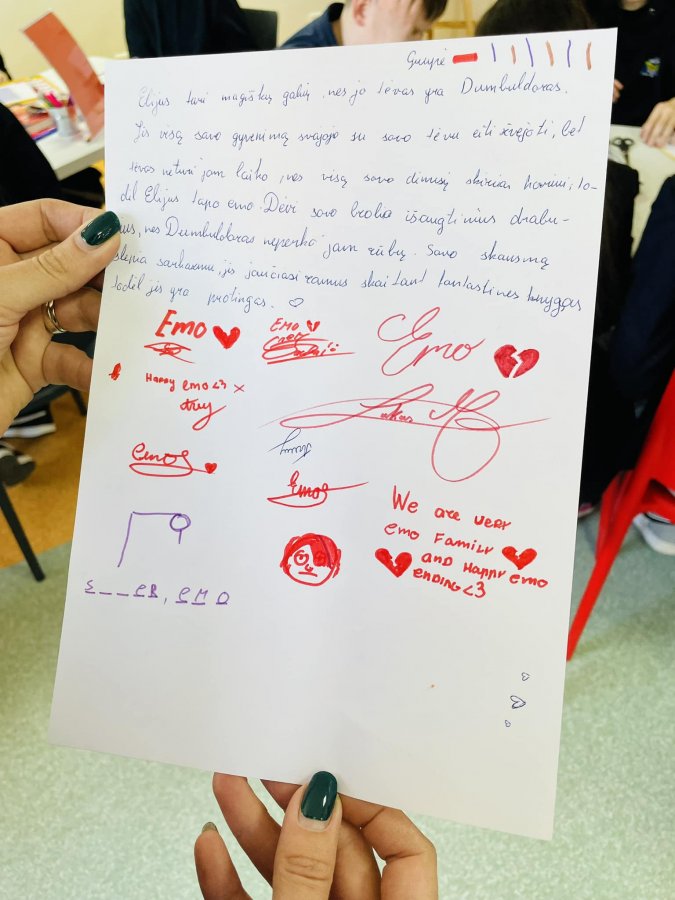 Grupė
Elijus turi magiškų galių, nes jo tėvas yra Dumbuldoras.
Jis visą savo gyvenimą svajojo su savo tėvu eiti žvejoti, bet
tėvas neturi jam laiko, nes visą savo dėmesį skiria Hariui, to-
dėl Elijus tapo emo. Dėvi savo brolio išaugtinius drabu-
žius, nes Dumbuldoras neperka jam rūbų. Savo skausmą
slepia sarkazmu, jis jaučiasi ramus skaitant fantastines knygas
todėl jis yra protingas.
Emo
EMO
Emo
Happy emo <3 x
Lukas
Emos
Emos
We are very
emo Family
and Happy emo
ending <3
S _ _ E R , E M O